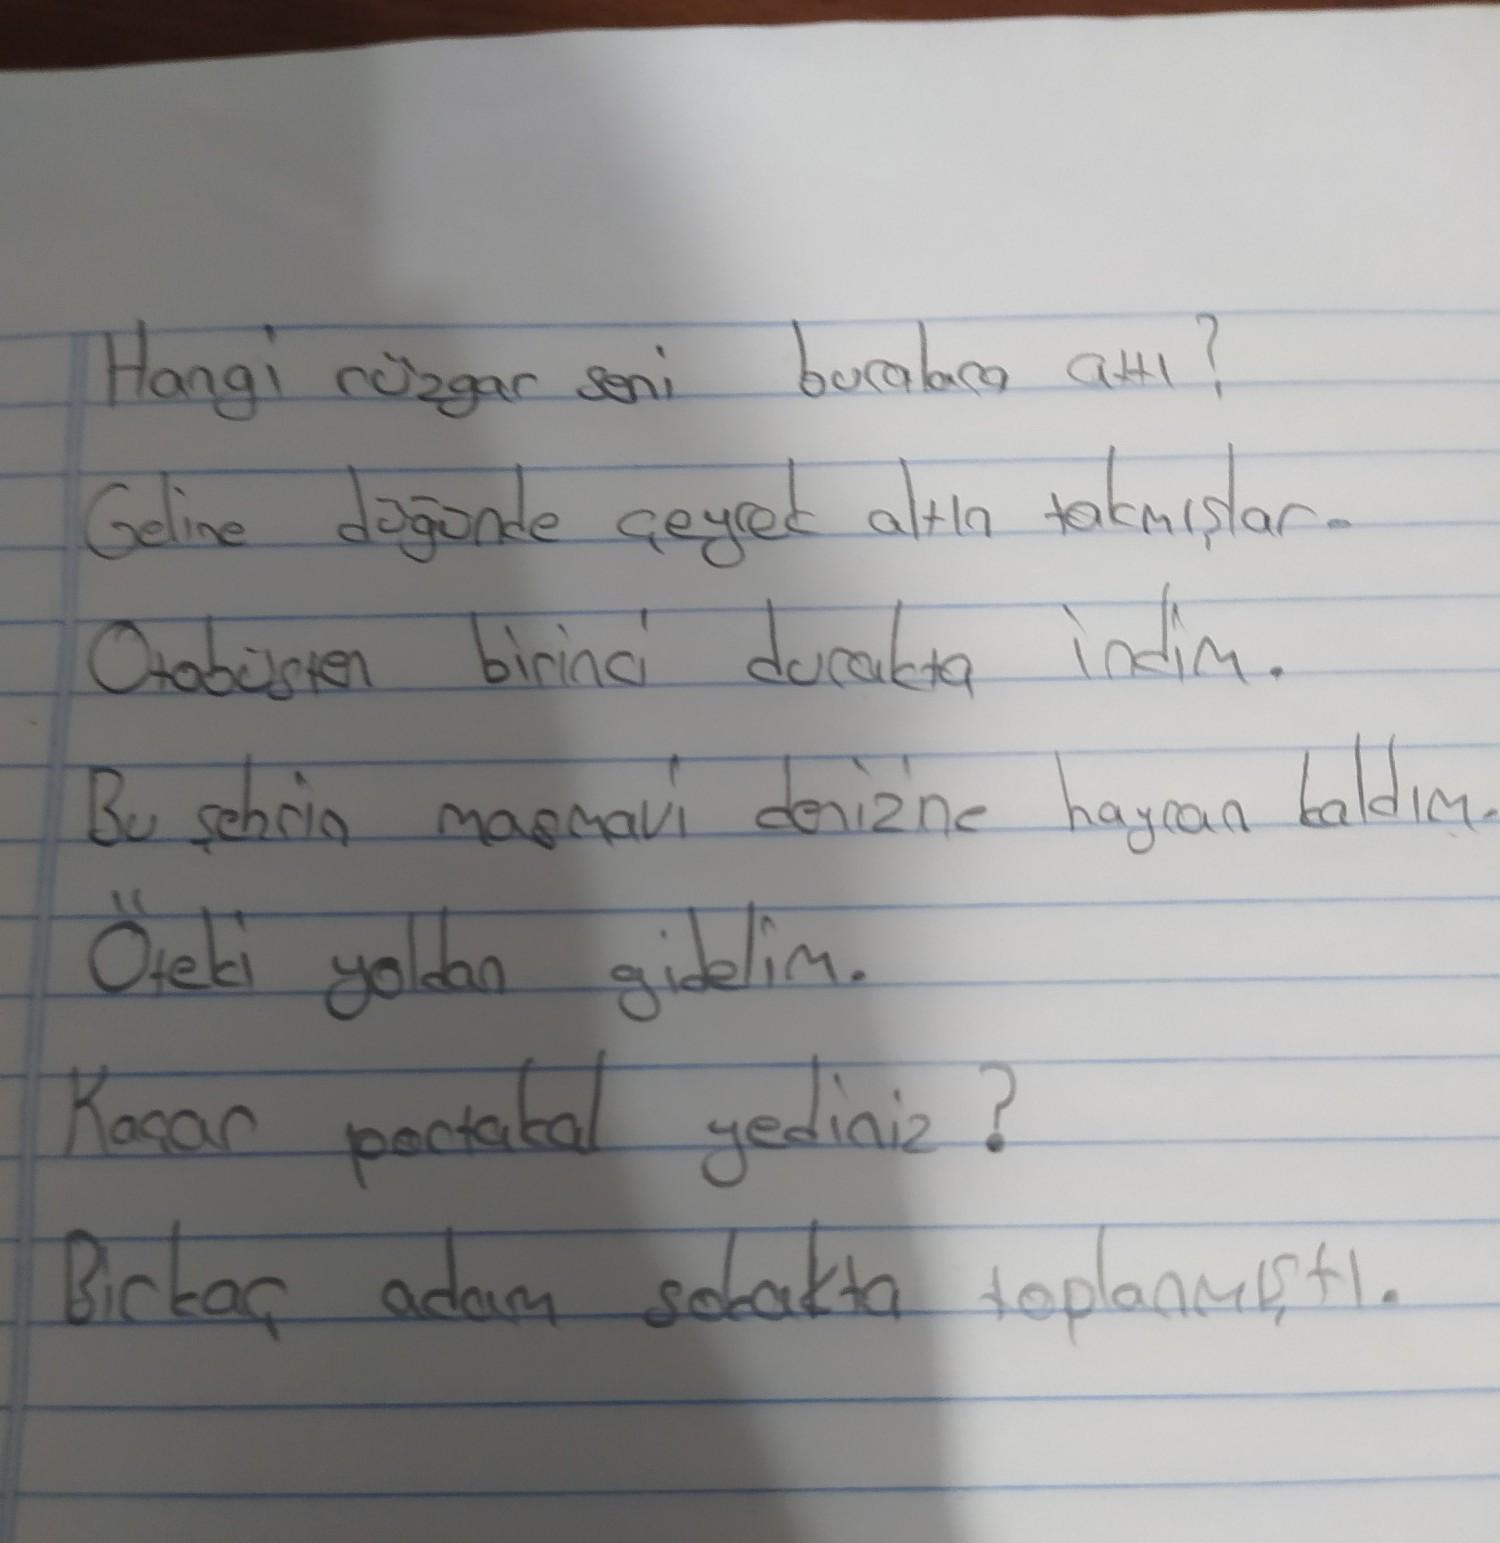 Hangi rüzgar seni buralara attı?
Geline düğünde çeyrek altın takmışlar.
Otobüsten birinci durakta indim.
Bu şehrin masmavi denizne hayran kaldım.
Öteki yoldan gidelim.
Kaçar portakal yediniz?
Birkaç adam sokakta toplanmıştı.